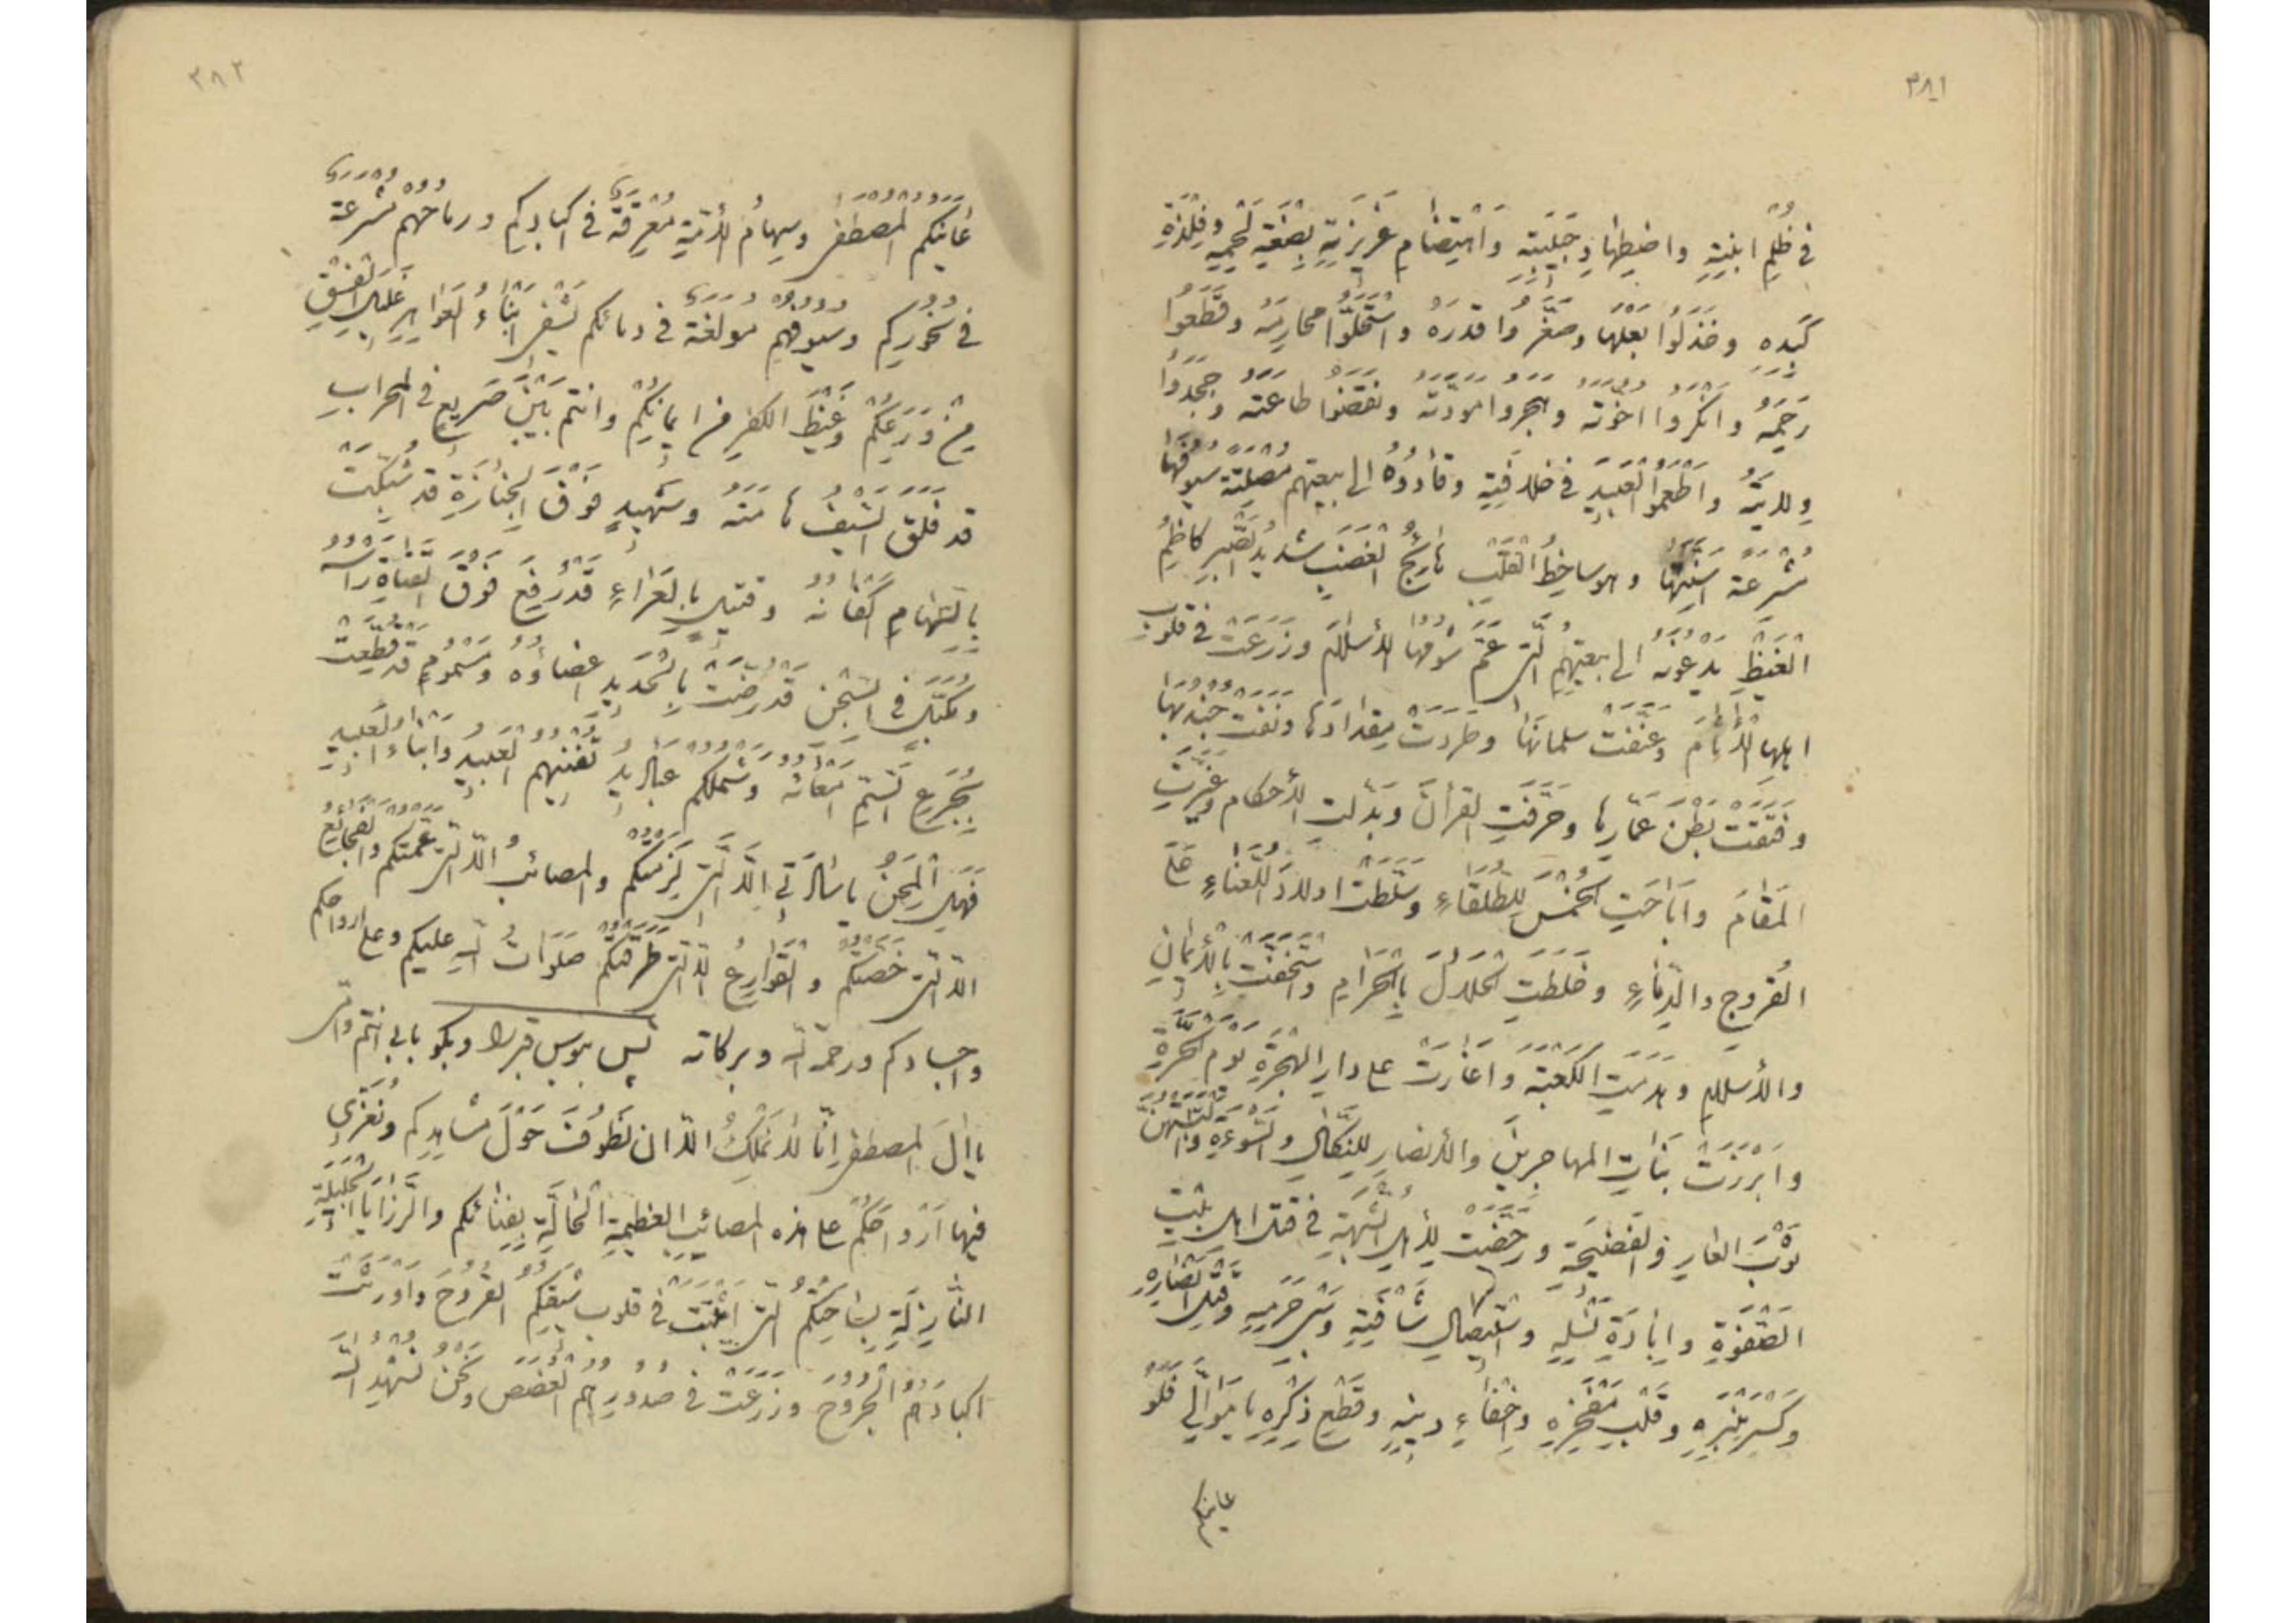 ٣٨١
في ظُلْمِ ابْنَتِهِ واضطِهادِ حَبيبَتِه وَاهْتِضٰامِ عَزيزَتِهِ بَضْعَةِ لَحْمِهِ وفِلْذَةِ
كَبِدِهِ وخَذَلُوا بَعْلَهٰا وصَغَّرُوا قدرَهُ واسْتَحَلُّوا محارِمَهُ وقَطَعُوا
رَحِمَهُ وانْكَرُوا اخُوَّتَهُ وهجروا مودّتَهُ ونقَضُوا طاعَتَهُ وجَحَدُوا
وِلايتَهُ واَطْمَعُوا الْعَبيدَ في خلافَتِهِ وقٰادُوهُ الى بيعتِهم مُصْلِتَةً سُيوفَهٰا
مُشْرِعَةً اَسِنَّتَهٰا وهو ساخِطُ القَلْبِ هٰائِجُ الْغَضَبِ شديدُ الصَّبْرِ كاظِمُ
الْغَيْظِ يَدْعُونَهُ الى بيعتِهِمُ الّتى عَمَّ شُومُهَا الاِسْلامَ وزَرَعَتْ في قلوبِ
اهلِهَا الْاٰثٰامَ وعَنَّفَتْ سلمانَهٰا وطَرَدَتْ مِقدادَهٰا ونَفَتْ جُنْدُبَهٰا
وفَتَقَتْ بَطْنَ عَمّارِهٰا وحَرَّفَتِ القرآنَ وبَدَّلَتِ الْأَحكامَ وغَيَّرَتِ
المَقٰامَ واَبٰاحَتِ الْخُمْسَ لِلطُّلَقٰاءِ وسَلَّطَتْ اولادَ اللُّعَنٰاءِ عَلَى
الفُروجِ والدِّمٰاءِ وخَلَطَتِ الْحَلالَ بِالْحَرٰامِ واسْتَخَفَّتْ بِالْايمٰانِ
والْاِسلامِ وهَدَمَتِ الْكَعْبَةَ وَاَغٰارَتْ على دارِ الهِجْرَةِ يَوْمَ الْحَرَّةِ
وَاَبْرَزَتْ بَنٰاتِ المهاجرينَ والأنصارِ لِلنَّكٰالِ والسَّوْءَةِ واَلْبَسَتْهُنَّ
ثَوْبَ العٰارِ والفَضيحَةِ ورَخَّصَتْ لِاَهْلِ الشُّبْهَةِ في قتلِ اهلِ بَيْتِ
الصَّفْوَةِ واِبٰادَةِ نَسْلِهِ واسْتيصالِ شَأْفَتِهِ وسَبْىِ حَرَمِهِ وقَتْلِ اَنْصٰارِهِ
وكَسْرِ مِنْبَرِهِ وقَلْبِ مَفْخَرِهِ واِخْفٰاءِ دينِهِ وقَطْعِ ذِكْرِهِ يا مَوٰالِيَّ فَلَوْ
عاينكم
٣٨٢
عٰايَنَكُمُ الْمُصْطَفىٰ وسِهامُ الأُمَّةِ مُغْرِقَةٌ في اَكبادِكم ورماحُهُمْ مُشْرَعَةٌ
في نُحُورِكم وسُيوفُهُمْ مولَغَةٌ في دِمائكم يَشْفى اَبْنٰاءُ الْعَوٰاهِرِ غَليلَ الْفِسْقِ
مِنْ وَرَعِكُمْ وَغَيْظَ الكفرِ من ايمانِكُمْ وانتم بَيْنَ صَريعٍ في المحرابِ
قد فَلَقَ السَّيْفُ هٰامَتَهُ وشَهيدٍ فَوْقَ الْجَنٰازَةِ قد شُبِّكَتْ
بِالسِّهٰامِ اَكْفٰانُهُ وقتيلٍ بِالْعَرٰاءِ قَدْ رُفِعَ فَوْقَ الْقَنٰاةِ رَاْسُهُ
ومُكَبَّلٍ في السِّجْنِ قَدْ رُضَّتْ بِالْحَديدِ اعضاؤُهُ ومَسْمُومٍ قَد قُطِّعَتْ
بِجُرَعِ السَّمِّ اَمْعٰاؤُهُ وشَمْلُكُم عباديدُ تُفْنيهِمُ الْعَبيدُ واَبْنٰاءُ الْعَبيدِ
فَهَلِ الْمِحَنُ يا سٰادَتي اِلَّا الَّتى لَزِمَتْكُمْ والمصائبُ اِلّا الّتى عَمَّتْكُمْ والفَجٰائعُ
اِلّا الّتى خَصَّتْكُمْ والقَوٰارِعُ اِلّا الّتى طَرَقَتْكُمْ صَلَوٰاتُ اللهِ عليكم وعلى ارواحكم
واجسادكم ورحمة الله وبركاته پس ببوس قبر را وبگو بابي انتم وامّى
يا اٰلَ المصطفىٰ اِنّا لا نَمْلِكُ اِلّا ان نَطُوفَ حَوْلَ مَشاهِدِكم ونُعَزِّىَ
فيها اَرْوٰاحَكُمْ على هذه المصائبِ العَظيمةِ الْحٰالَّةِ بِفِنٰائِكم والرَّزٰايَا الْجَليلَةِ
النّازِلَةِ بِسٰاحَتِكُمُ الّتى اَثْبَتَتْ في قلوبِ شيعَتِكُمُ القُرُوحَ وَاَوْرَثَتْ
اكبادَهُمُ الْجُرُوحَ وزَرَعَتْ في صُدُورِهِمُ الْغُصَصَ ونَحْنُ نُشْهِدُ اللهَ